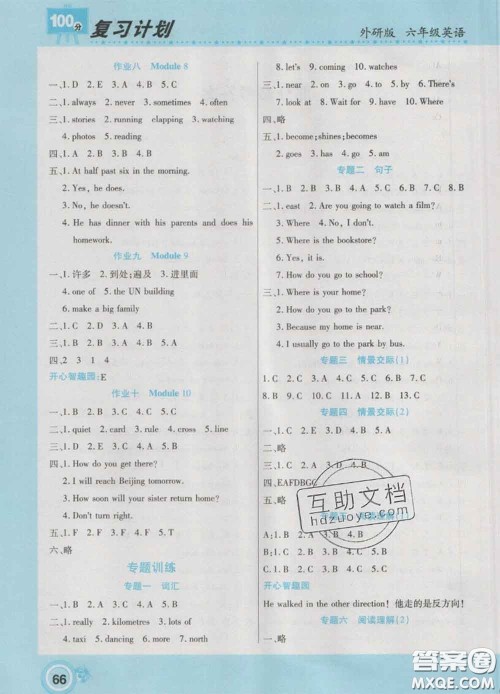 100分
复习计划
外研版 六年级英语
作业八 Module 8
一、1. D 2. E 3. A 4. B 5. C
二、1. always 2. never 3. sometimes 4. often
三、1. stories 2. running clapping 3. watching
4. photos 5. reading
四、1. B 2. A 3. A 4. B 5. A
五、1. At half past six in the morning.
2. Yes, he does.
3. No, he doesn't.
4. He has dinner with his parents and does his
homework.
作业九 Module 9
一、1. 许多 2. 到处;遍及 3. 进里面
4. one of 5. the UN building
6. make a big family
二、1. C 2. B 3. A 4. B
三、1. B 2. D 3. A 4. B
四、2 3 1 4
开心智趣园:E
作业十 Module 10
一、1. quiet 2. card 3. rule 4. line
二、1. C 2. E 3. D 4. A 5. B
三、1. B 2. A 3. B 4. A 5. B
四、1. How do you get there?
2. I will reach Beijing tomorrow.
3. How soon will your sister return home?
4. Don't turn right.
五、1. F 2. F 3. T 4. T 5. F
六、略
专题训练
专题一 词汇
一、1. D 2. B 3. C 4. A 5. C
二、1. really 2. kilometres 3. lots of
4. taxi 5. dancing 6. date 7. dinosaur
8. let's 9. coming 10. watches
三、1. near 2. on 3. go 4. to 5. There's
7. look at 8. Wait for 9. have 10. Where
四、略
五、1. become;shines;becomes
2. goes 3. has 4. go 5. am
专题二 句子
一、1. B 2. A 3. A 4. C 5. C 6. A 7. B 8. B
二、1. east 2. Are you going to watch a film?
3. Where 4. No, I don't.
5. Where is the bookstore?
6. Yes, it is.
7. How do you go to school?
三、1. Where is your home?
2. How do you go to the park?
3. Because my home is near.
4. I usually go to the park by bus.
专题三 情景交际(1)
1. C 2. C 3. A 4. C 5. B 6. C 7. A
8. B 9. B 10. C 11. A 12. C 13. B
专题四 情景交际(2)
一、1. C 2. E 3. D 4. A 5. B
二、略
三、1. D 2. C 3. A 4. E 5. B
四、EAFDBGC
五、略
A:1. B 2. B
B:1. F 2. T 3. F 4. F 5. T
C. 1. B 2. D 3. C 4. A 5. B
开心智趣园
He walked in the other direction! 他走的是反方向!
专题六 阅读理解(2)
一、略
互助文档
hdzuoye.com
66
答案圈
MXQE.COM